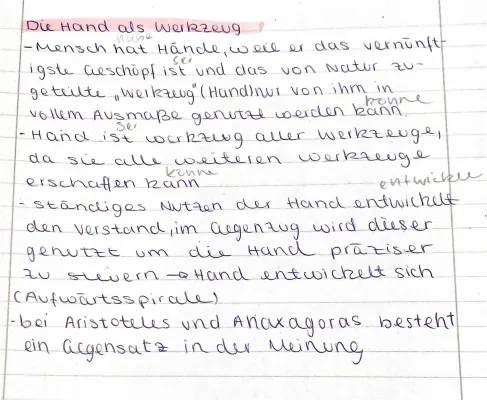 Die Hand als Werkzeug
habe
- Mensch hat Hände, weil er das vernünft-
sei
igste Geschöpf ist und das von Natur zu-
geteilte „Werkzeug" (Hand) nur von ihm in
vollem Ausmaße genutzt werden kann
könne
sei
- Hand ist Werkzeug aller Werkzeuge,
da sie alle weiteren Werkzeuge
könne
erschaffen kann
entwickle
- ständiges Nutzen der Hand entwickelt
den Verstand, im Gegenzug wird dieser
genutzt um die Hand präziser
zu steuern → Hand entwickelt sich
(Aufwärtsspirale)
- bei Aristoteles und Anaxagoras besteht
ein Gegensatz in der Meinung